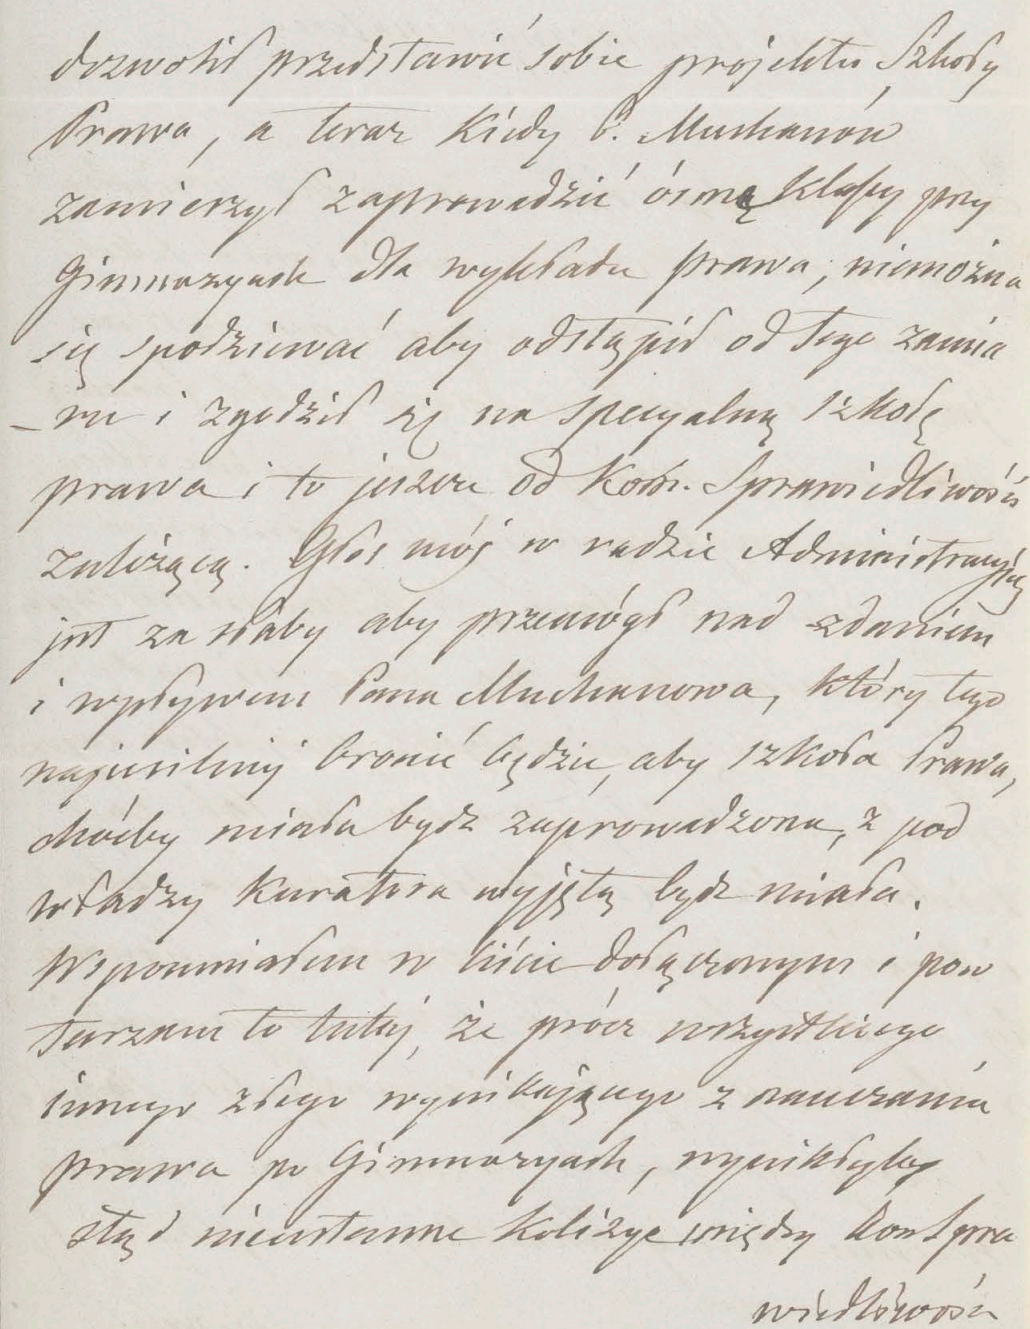 dozwolił przedstawić sobie projektu Szkoły
Prawa, a teraz kiedy P. Muchanów
zamierzył zaprowadzić ósmą klassy przy
Gimnazyach dla wykładu prawa, niemożna
się spodziewać aby odstąpił od tego zamia
-ru i zgodził się na specyalną szkołę
prawa i to jeszcze od Kom. Sprawiedliwości
zależącą. Głos mój w radzie Administracyjnej
jest za słaby aby przemógł nad zdaniem
i wpływem Pana Muchanowa, który tego
najusilniej bronić będzie, aby szkoła Prawa,
choćby miała bydz zaprowadzona, z pod
władzy Kuratora wyjętą bydz miała.
Wspomniałem w liście dołączonym i pow
tarzam to tutaj, że prócz wszystkiego
innego złego wynikającego z nauczania
prawa po Gimnazyach, wynikłyby
stąd nieustanne kolizye między Kom Spra
wiedliwości